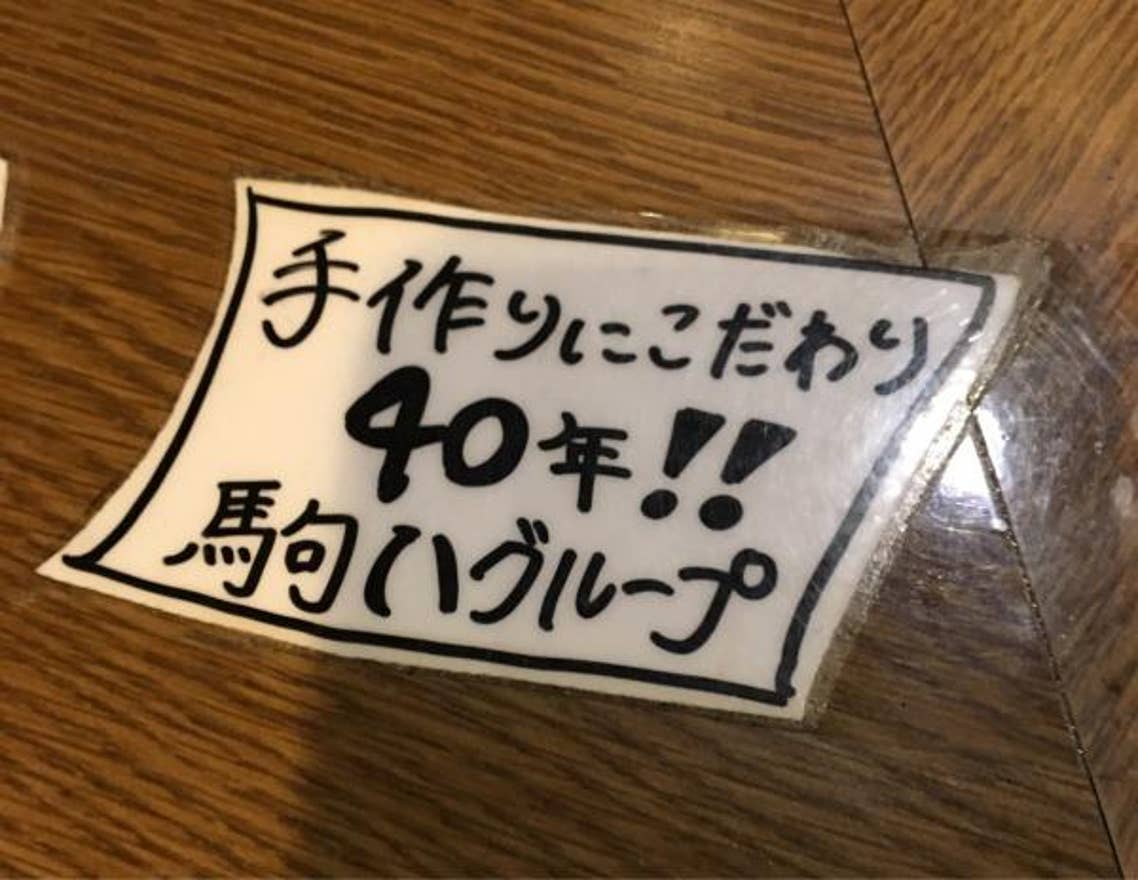 手作りにこだわり
40年!!
駒八グループ